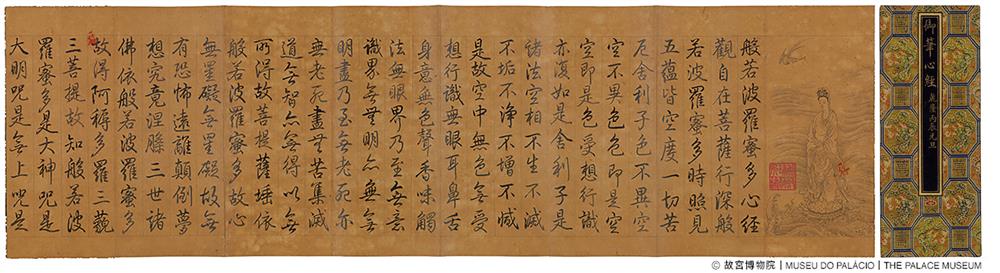 御筆心經
嘉慶丙辰元旦
般若波羅蜜多心經
觀自在菩薩行深般
若波羅蜜多時照見
五蘊皆空度一切苦
厄舍利子色不異空
空不異色色即是空
空即是色受想行識
亦復如是舍利子是
諸法空相不生不滅
不垢不淨不增不減
是故空中無色無受
想行識無眼耳鼻舌
身意無色聲香味觸
法無眼界乃至無意
識界無無明亦無無
明盡乃至無老死亦
無老死盡無苦集滅
道無智亦無得以無
所得故菩提薩埵依
般若波羅蜜多故心
無罣礙無罣礙故無
有恐怖遠離顛倒夢
想究竟涅槃三世諸
佛依般若波羅蜜多
故得阿耨多羅三藐
三菩提故知般若波
羅蜜多是大神咒是
大明咒是無上咒是
© 故宮博物院 | MUSEU DO PALÁCIO | THE PALACE MUSEUM